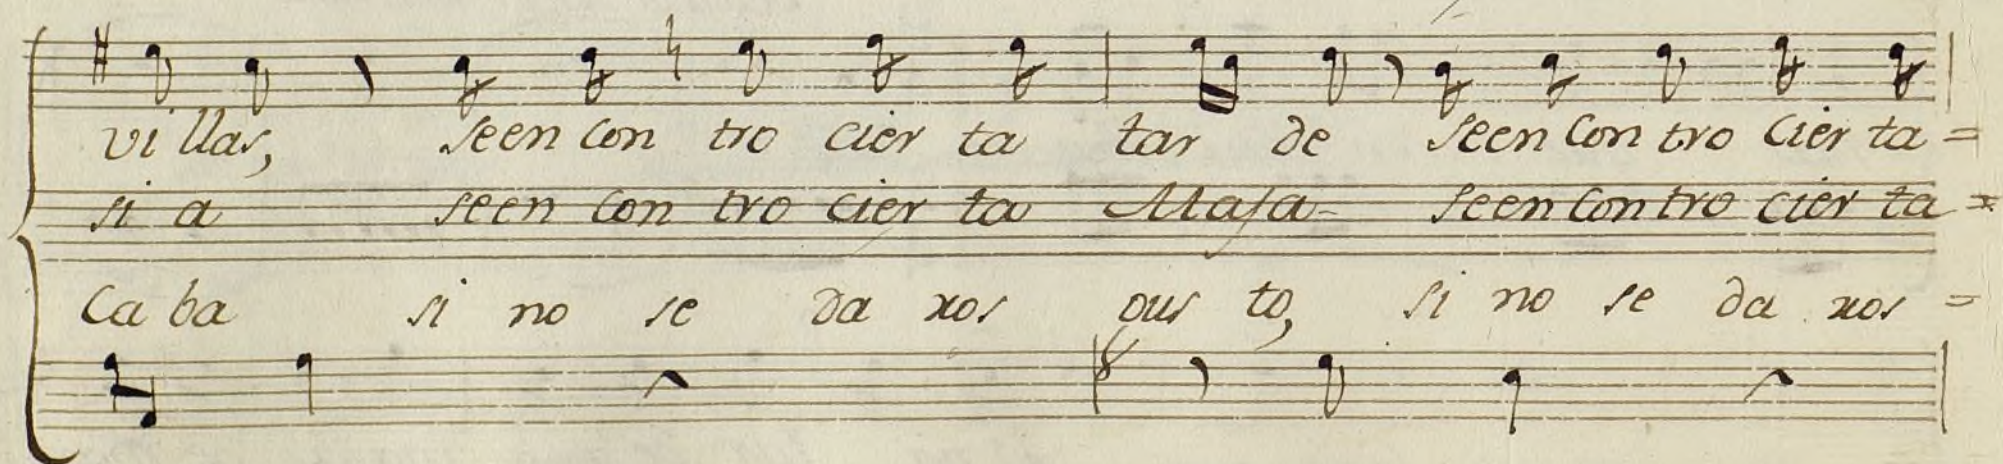 villas, se en con tro cier ta tar de se en con tro cier ta =
si a se en con tro cier ta Maja se en con tro cier ta =
Ca ba si no se da xos gus to, si no se da xos =